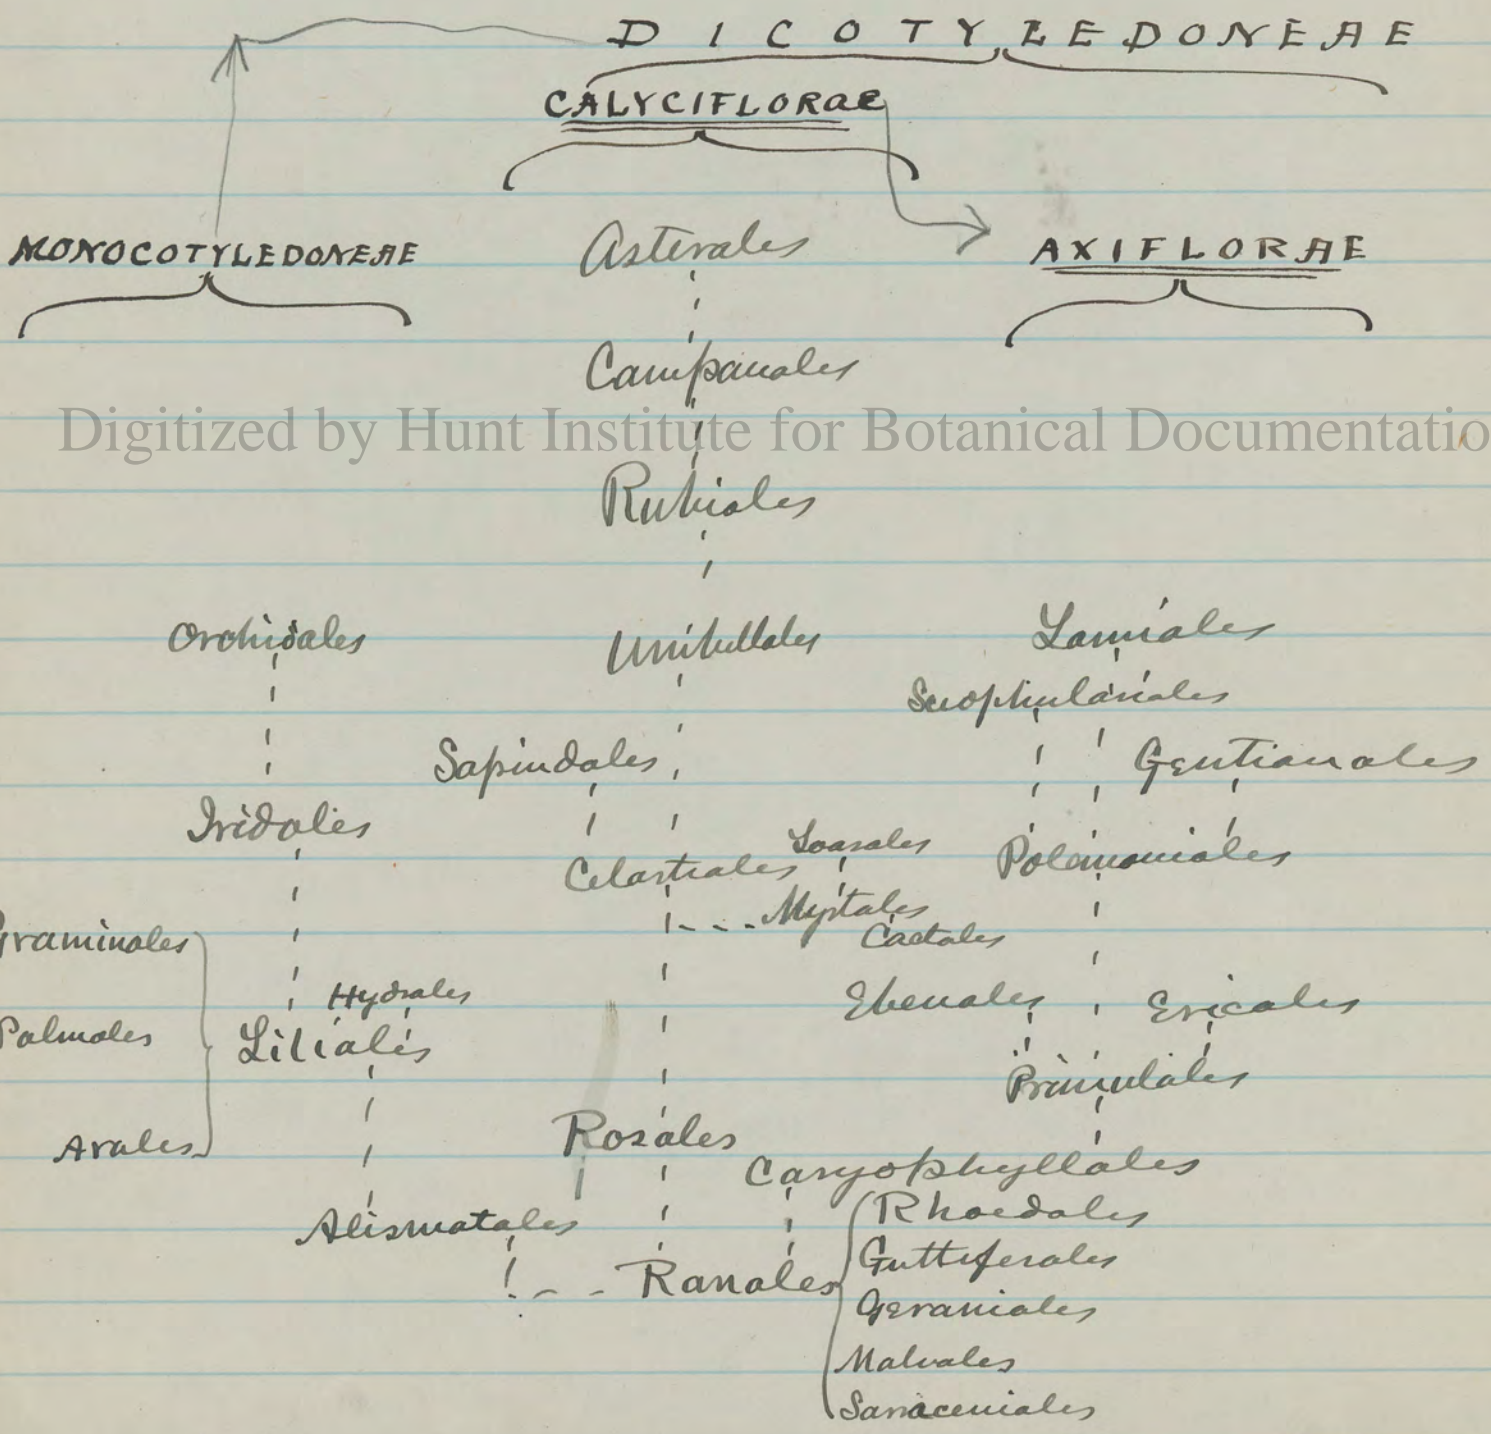 DICOTYLEDONEAE
CALYCIFLORAE
MONOCOTYLEDONEAE
Asterales
AXIFLORAE
Campanales
Digitized by Hunt Institute for Botanical Documentatio
Rubiales
Orchidales
Umbellales
Lamiales
Scrophulariales
Sapindales
Gentianales
Iridales
Loasales
Celastrales
Polemoniales
Myrtales
Cactales
Graminales
Hydrales
Ebenales
Ericales
Palmales
Liliales
Primulales
Arales
Rosales
Caryophyllales
Alismatales
Rhoedales
Ranales
Guttiferales
Geraniales
Malvales
Sarraceniales